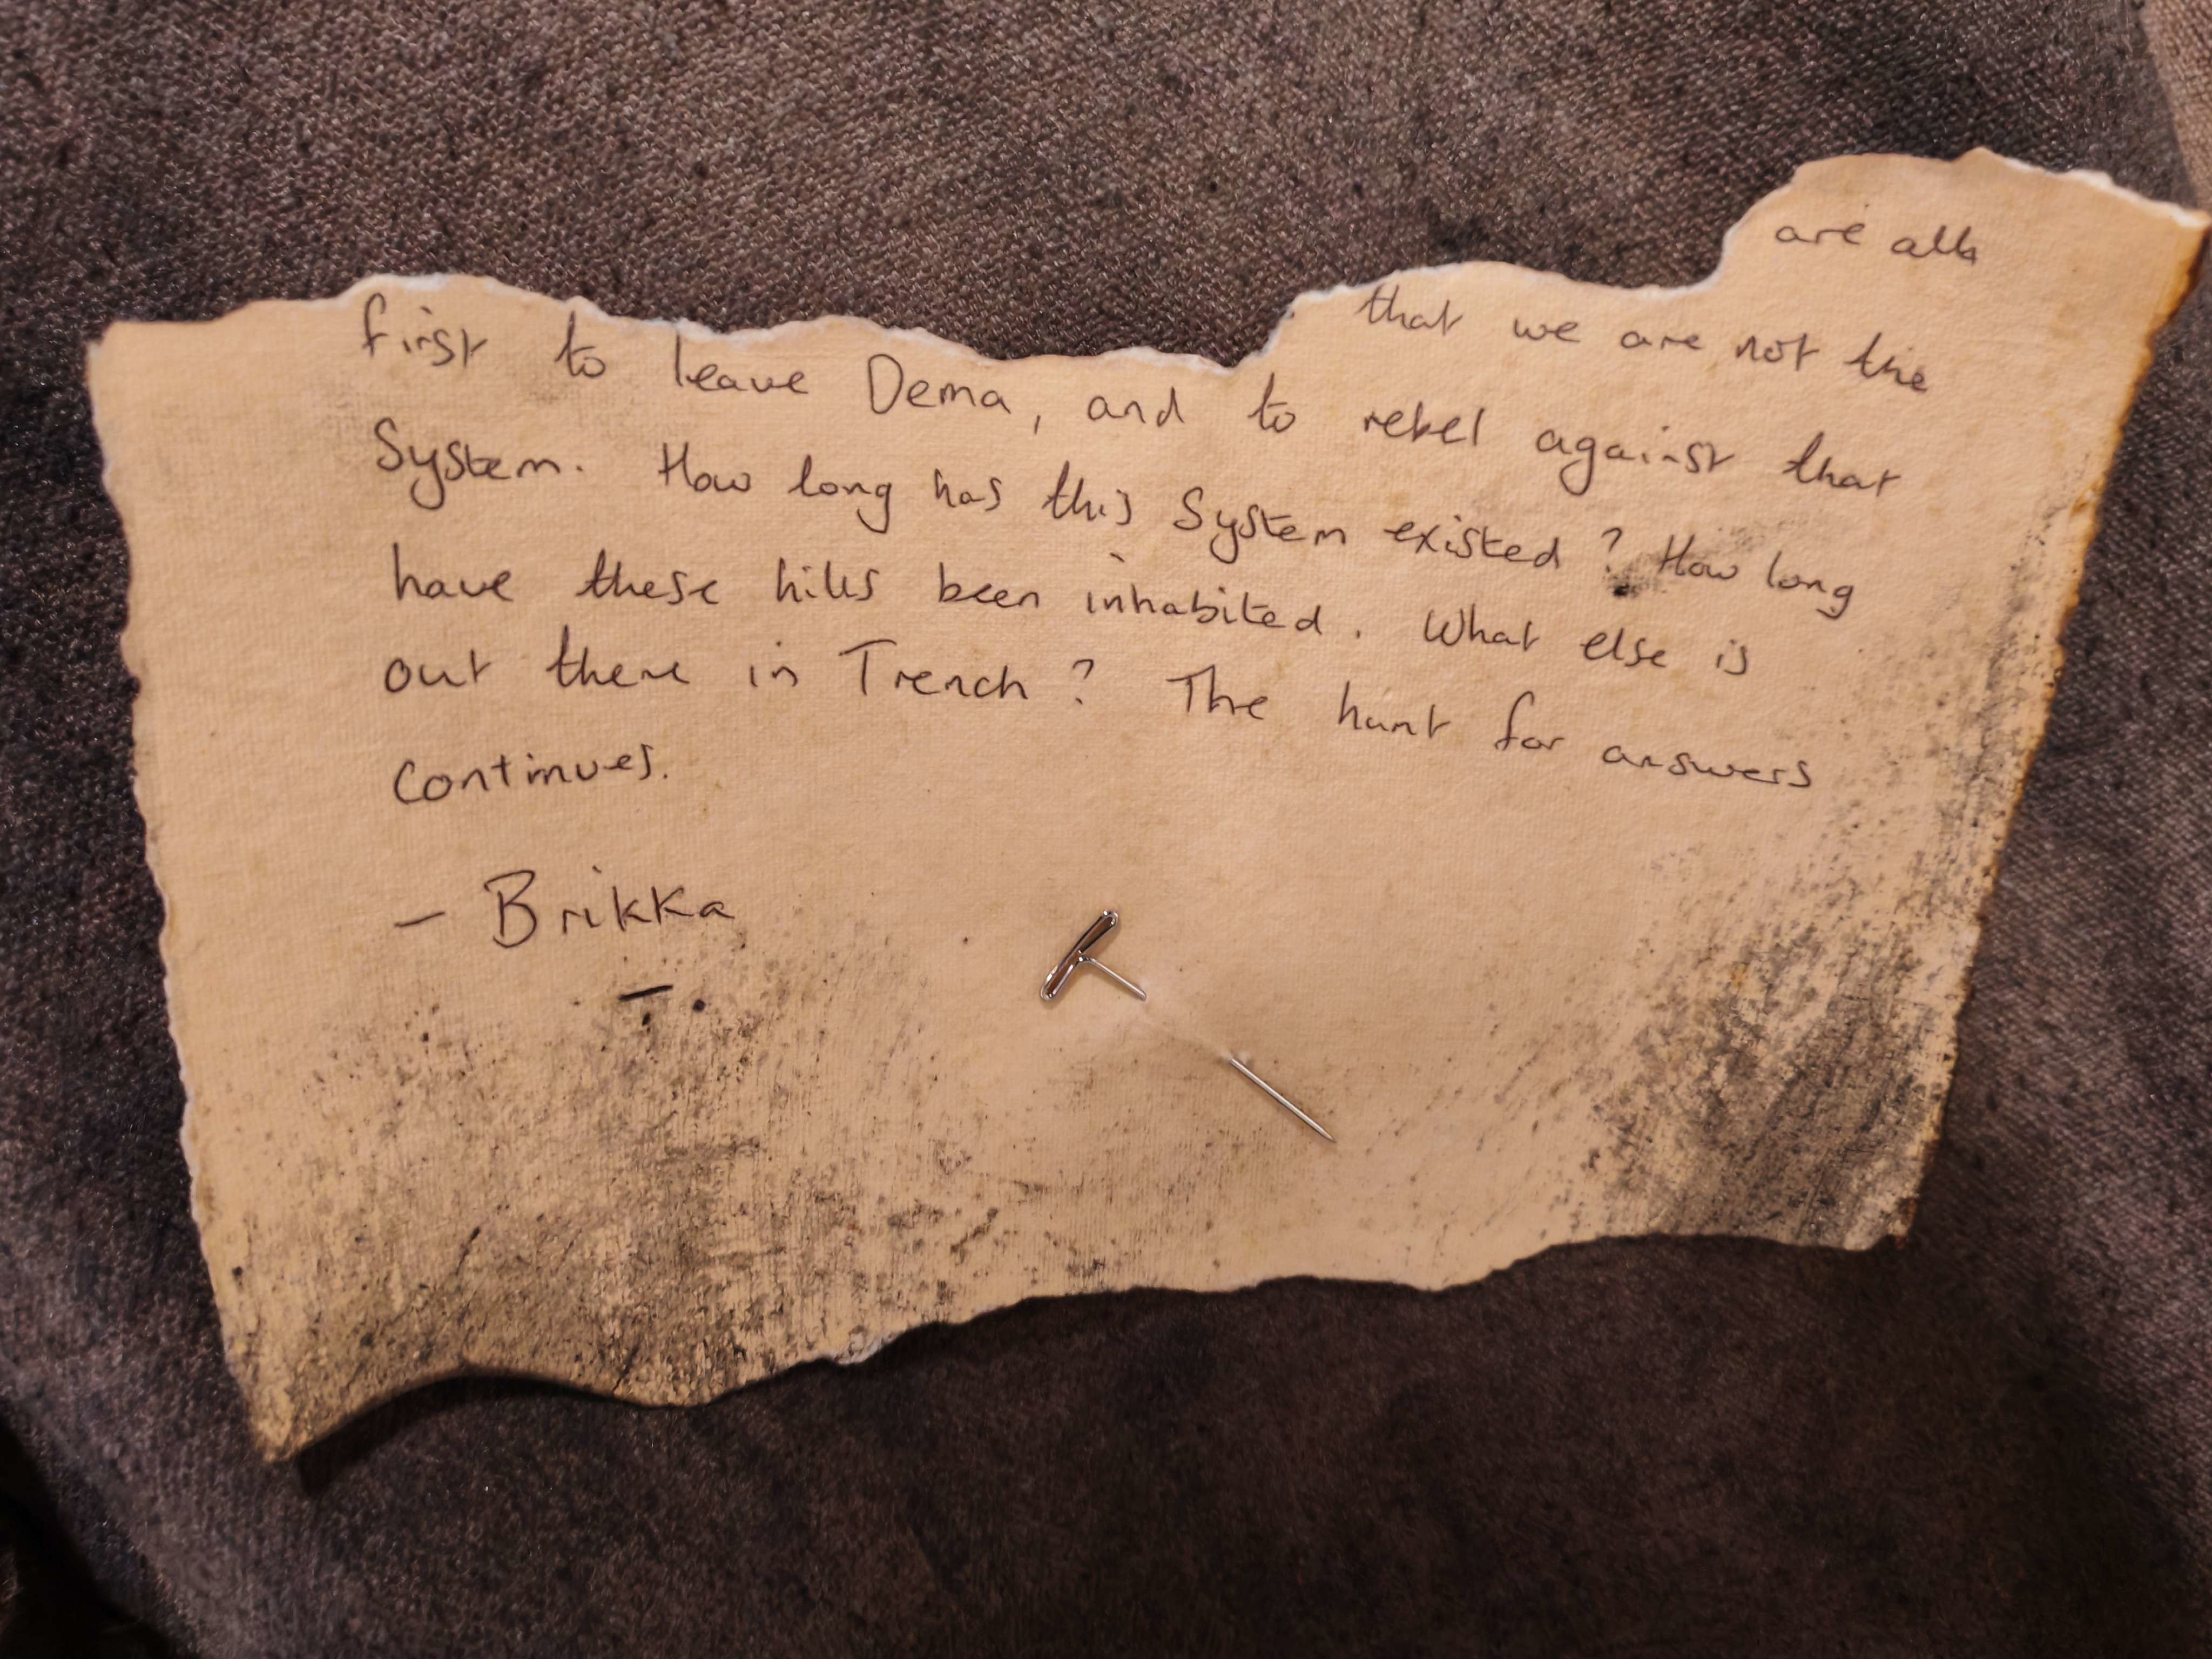 are all
that we are not the
first to leave Dema, and to rebel against that
System. How long has this System existed? How long
have these hills been inhabited. What else is
out there in Trench? The hunt for answers
continues.
- Brikka